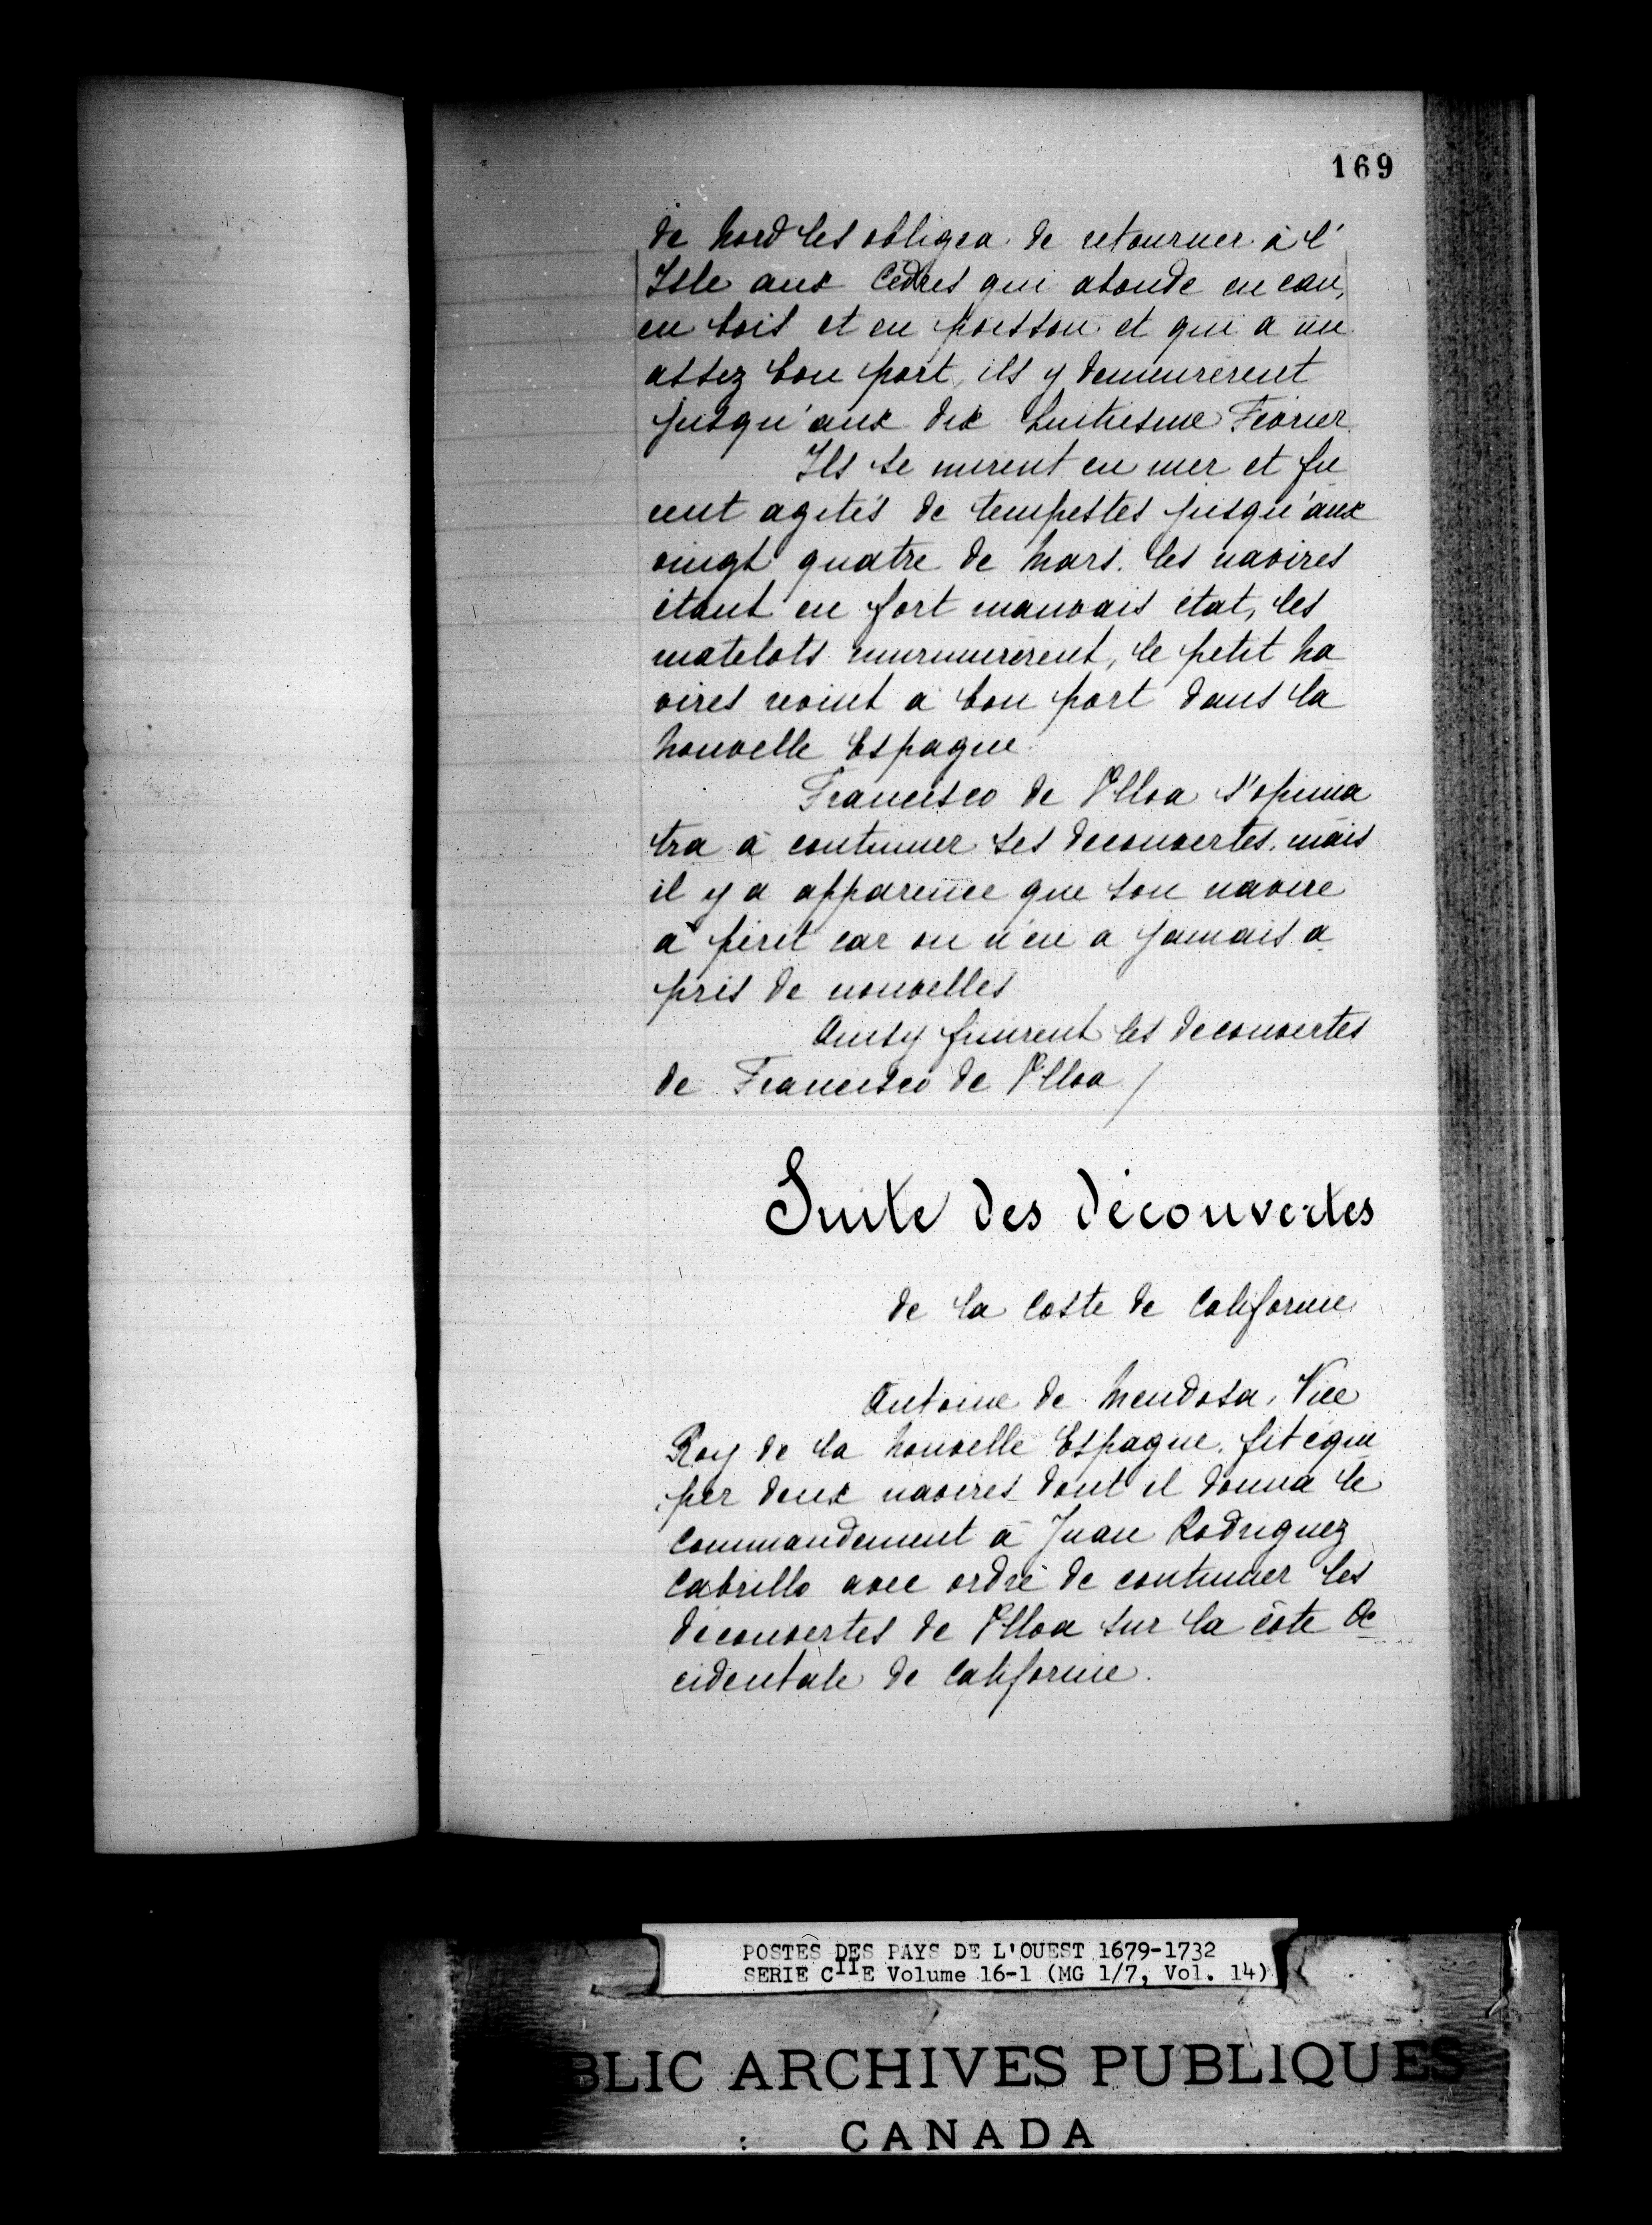 169
de Nord les obligea de retourner à l'
Isle aux Cèdres qui abonde en eau,
en bois et en poisson et qui a un
assez bon port, ils y demeurèrent
jusqu'aux dix huitiesme Février.
Ils se mirent en mer et fu
rent agités de tempestes jusqu'aux
vingt quatre de Mars. les navires
étant en fort mauvais état, les
matelots murmurèrent, le petit Na
vires revint à bon port dans la
Nouvelle Espagne.
Francisco de Ulloa s'opinia
tra à continuer ses decouvertes, mais
il y a apparence que son navire
a périt car on n'en a jamais a
pris de nouvelles
Ainsy finirent les decouvertes
de Francisco de Ulloa /
Suite des découvertes
de la Coste de Californie
Antoine de Mendosa, Vice
Roy de la Nouvelle Espagne, fit équi
per deux navires dont il donna le
Commandement à Juan Rodriguez
Cabrillo avec ordre de continuer les
découvertes de Ulloa sur la côte Oc
cidentale de Californie.
POSTES DES PAYS DE L'OUEST 1679-1732
SERIE CIIE Volume 16-1 (MG 1/7, Vol. 14)
BLIC ARCHIVES PUBLIQUES
CANADA